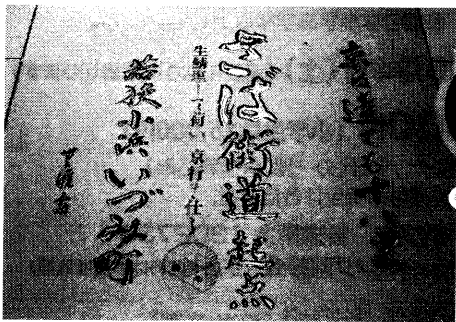 京は遠ても十八里
さば街道起点
生鯖塩して荷い京行き仕る
若狭小浜いづみ町